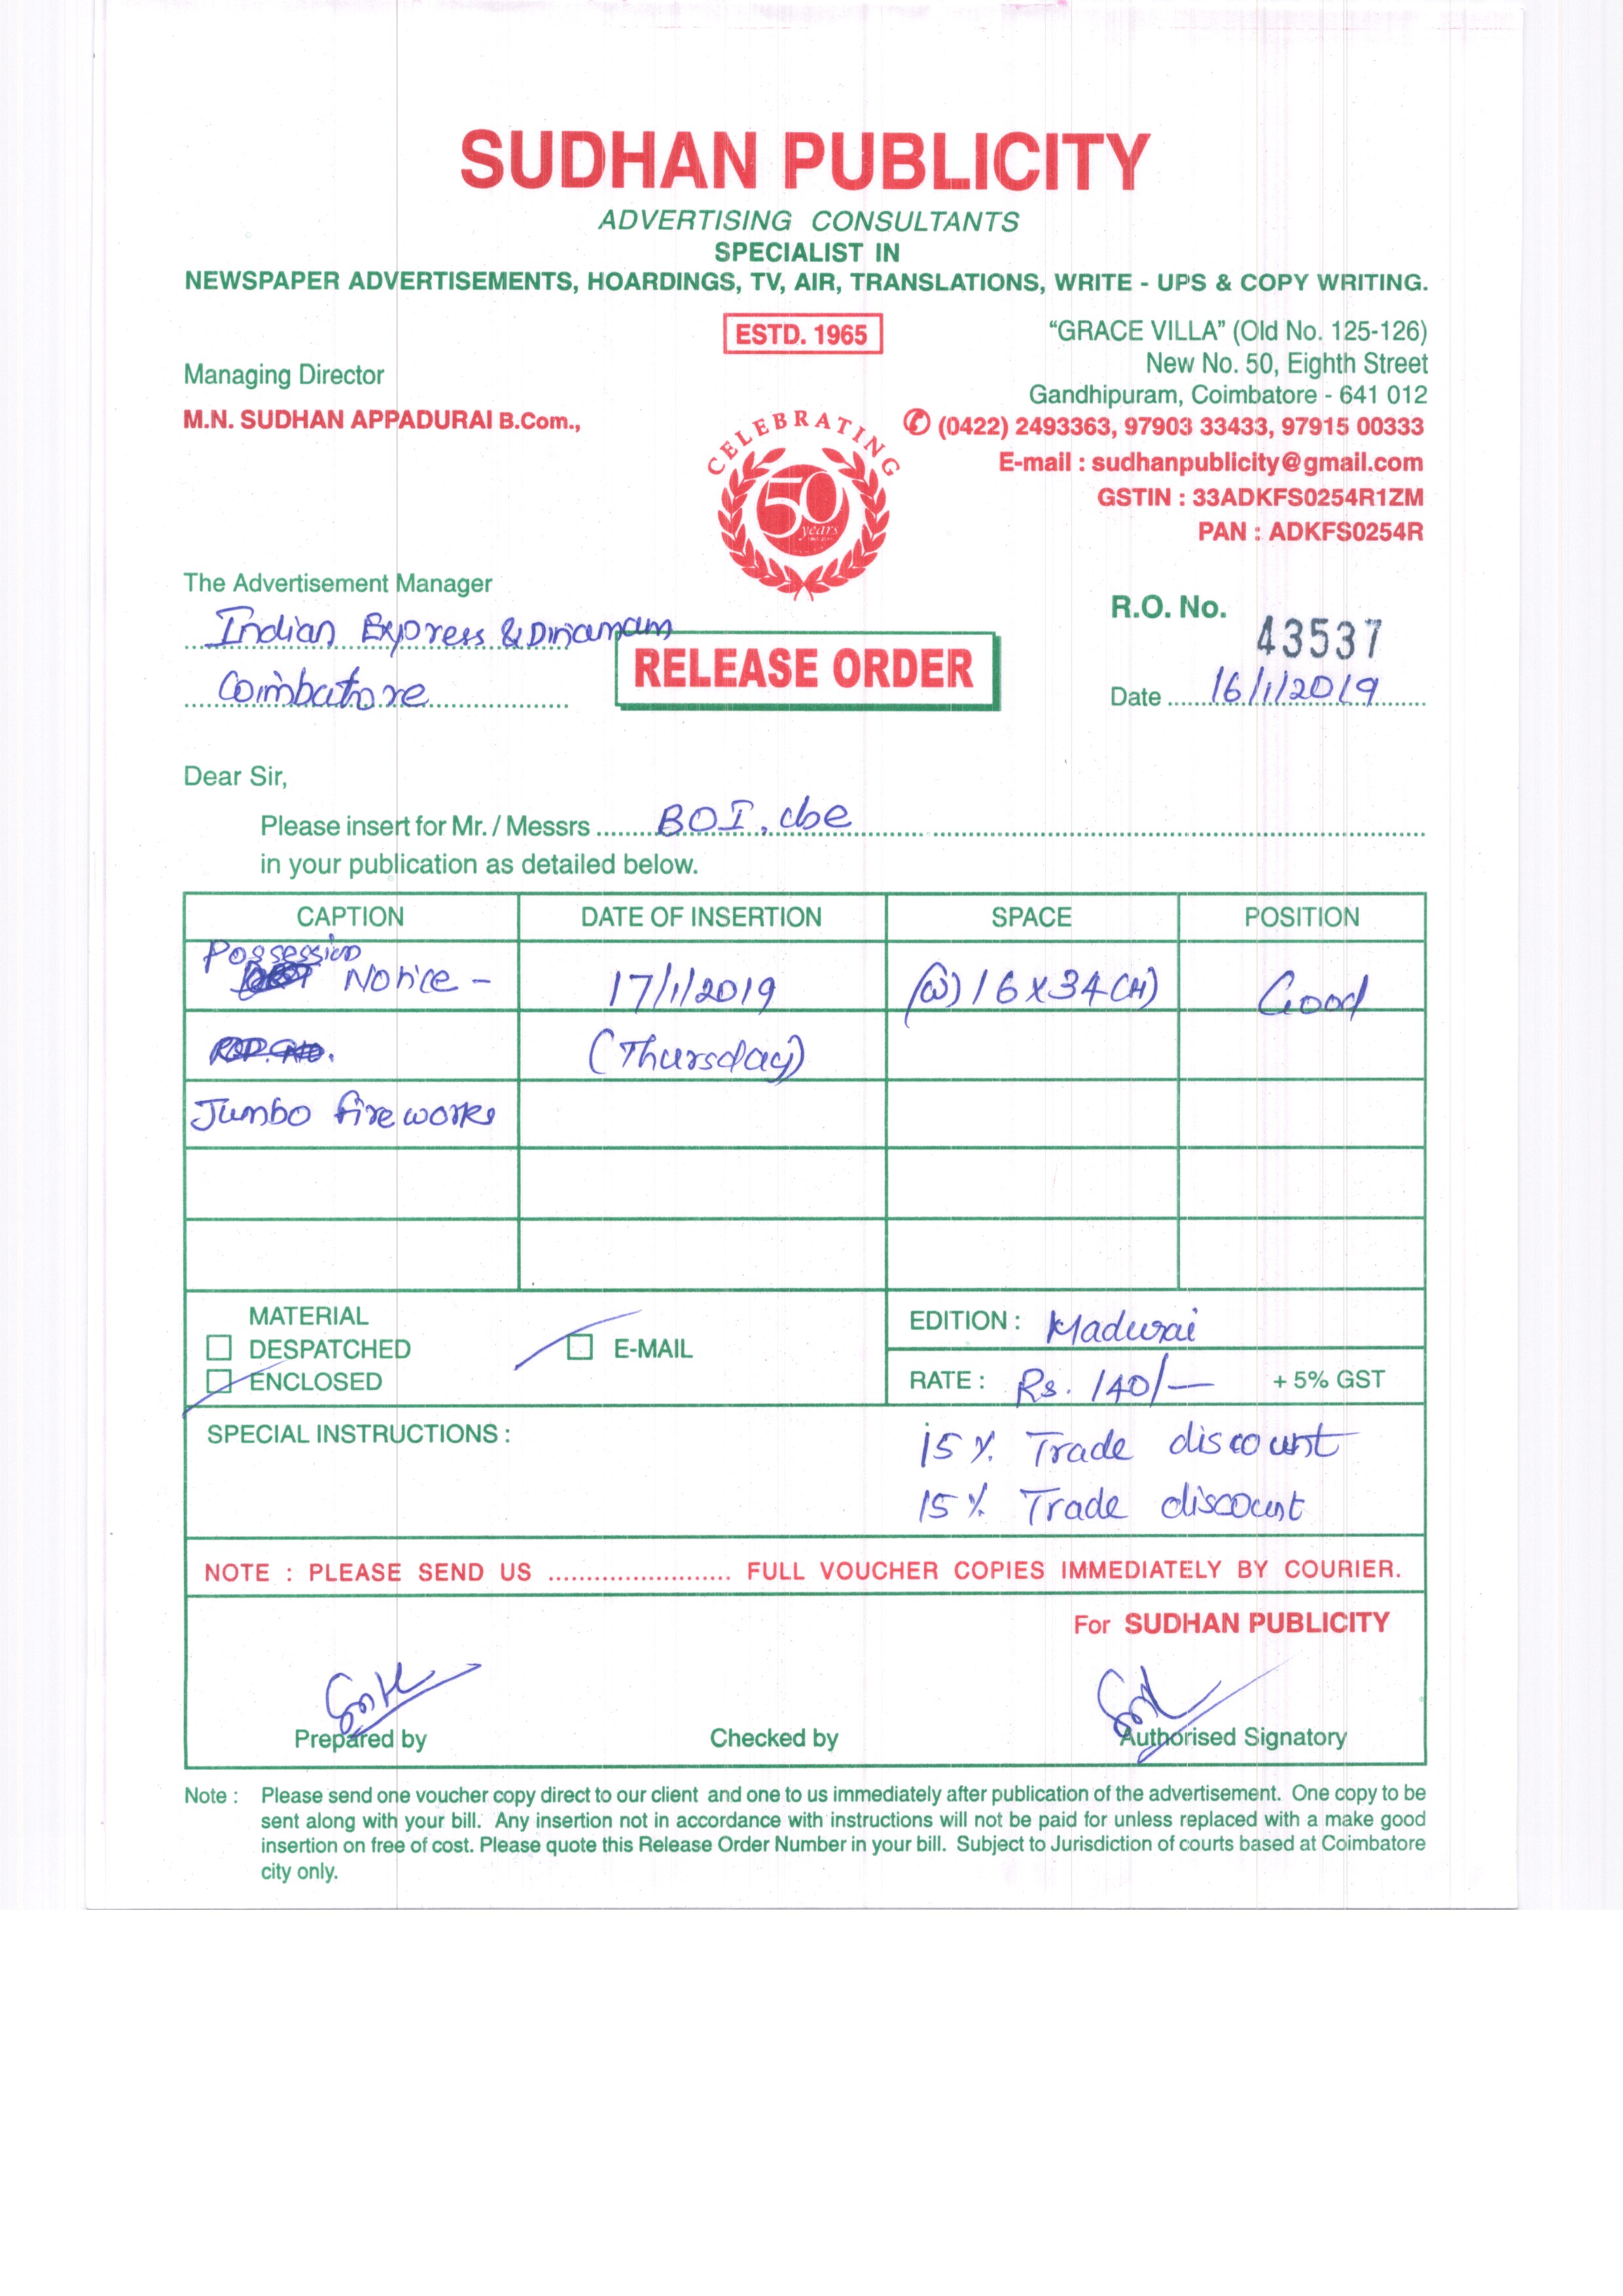 SUDHAN PUBLICITY
ADVERTISING CONSULTANTS
SPECIALIST IN
NEWSPAPER ADVERTISEMENTS, HOARDINGS, TV, AIR, TRANSLATIONS, WRITE - UPS & COPY WRITING.
ESTD. 1965
"GRACE VILLA" (Old No. 125-126)
New No. 50, Eighth Street
Gandhipuram, Coimbatore - 641 012
Managing Director
M.N. SUDHAN APPADURAI B.Com.,
✆ (0422) 2493363, 97903 33433, 97915 00333
E-mail : sudhanpublicity@gmail.com
GSTIN : 33ADKFS0254R1ZM
PAN : ADKFS0254R
CELEBRATING
50
years
The Advertisement Manager
Indian Express & Dinamam
Coimbatore
RELEASE ORDER
R.O. No. 43537
Date 16/1/2019
Dear Sir,
Please insert for Mr. / Messrs BOI, cbe
in your publication as detailed below.
CAPTION DATE OF INSERTION SPACE POSITION
Possession
Notice - 17/1/2019 (W) 16 X 34 (H) Good
(Thursday)
Jumbo fireworks
MATERIAL
DESPATCHED E-MAIL
ENCLOSED
EDITION : Madurai
RATE : Rs. 140/- + 5% GST
SPECIAL INSTRUCTIONS :
15% Trade discount
15% Trade discount
NOTE : PLEASE SEND US ....................... FULL VOUCHER COPIES IMMEDIATELY BY COURIER.
For SUDHAN PUBLICITY
Prepared by Checked by Authorised Signatory
Note : Please send one voucher copy direct to our client and one to us immediately after publication of the advertisement. One copy to be
sent along with your bill. Any insertion not in accordance with instructions will not be paid for unless replaced with a make good
insertion on free of cost. Please quote this Release Order Number in your bill. Subject to Jurisdiction of courts based at Coimbatore
city only.